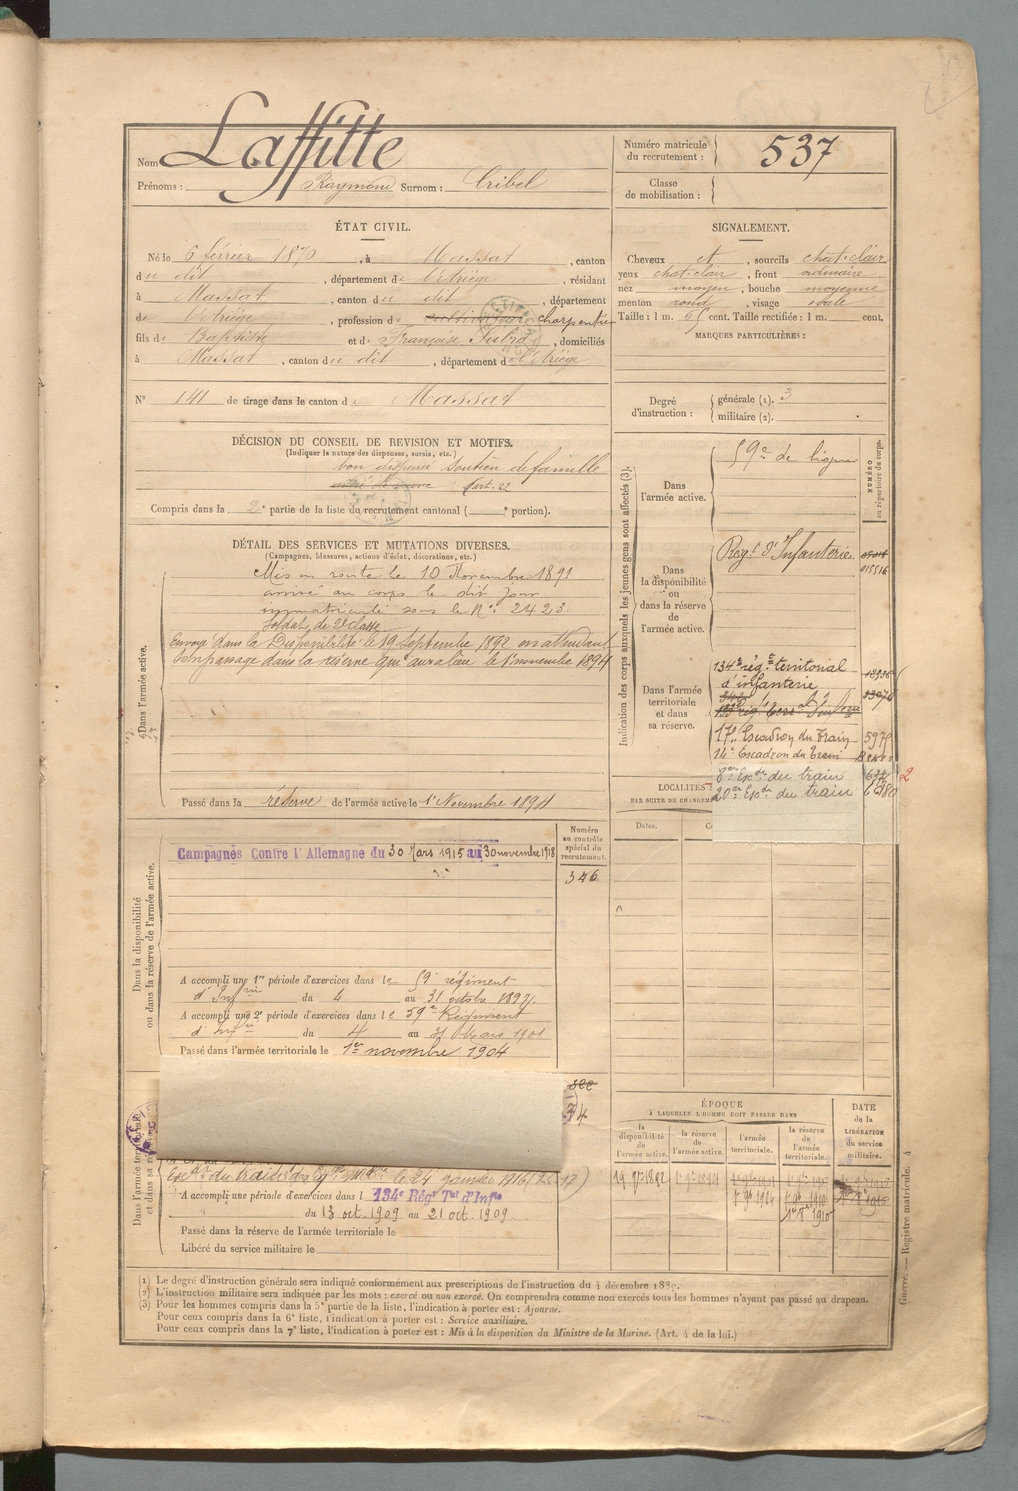 Nom Laffitte
Prénoms : Raymond Surnom : Cribel
Numéro matricule du recrutement : 537
Classe de mobilisation :
ÉTAT CIVIL.
Né le 6 février 1870, à Massat, canton
du dit, département de l'Ariège, résidant
à Massat, canton du dit, département
de l'Ariège, profession de cultivateur charpentier
fils de Baptiste et de Françoise, domiciliés
à Massat, canton du dit, département de l'Ariège
N° 141 de tirage dans le canton de Massat
SIGNALEMENT.
Cheveux et, sourcils chat-clair
yeux chat-clair, front ordinaire
nez moyen, bouche moyenne
menton rond, visage ovale
Taille : 1 m. 65 cent. Taille rectifiée : 1 m. cent.
MARQUES PARTICULIÈRES :
Degré d'instruction : générale (1). 3
militaire (2).
DÉCISION DU CONSEIL DE REVISION ET MOTIFS.
(Indiquer la nature des dispenses, sursis, etc.)
bon dispensé soutien de famille
art. 22
Compris dans la 2e partie de la liste du recrutement cantonal ( e portion).
DÉTAIL DES SERVICES ET MUTATIONS DIVERSES.
(Campagnes, blessures, actions d'éclat, décorations, etc.)
Dans l'armée active.
Mis en route le 10 Novembre 1891
arrivé au corps le dit jour
immatriculé sous le N° 2423.
Soldat de 2e classe
Envoyé dans la Disponibilité le 19 Septembre 1892 en attendant
son passage dans la réserve qui aura lieu le 1er novembre 1894
Passé dans la réserve de l'armée active le 1er Novembre 1894
Indication des corps auxquels les jeunes gens sont affectés (3).
NUMÉRO au répertoire du corps.
Dans l'armée active.
59e de ligne
Dans la disponibilité ou dans la réserve de l'armée active.
Regt d'Infanterie
015516
Dans l'armée territoriale et dans sa réserve.
134e rég.t territorial
d'infanterie
17e Escadron du Train 597
14e Escadron du Train
8e Esc.on du train
20e Esc.on du train
LOCALITÉS
PAR SUITE DE CHANGEM
Dates.
Dans la disponibilité ou dans la réserve de l'armée active.
Numéro au contrôle spécial du recrutement.
346
Campagnes Contre l'Allemagne du 30 Mars 1915 au 30 novembre 1918
A accompli une 1re période d'exercices dans le 59e régiment
d'Inf.rie du 4 au 31 octobre 1897.
A accompli une 2e période d'exercices dans le 59e Régiment
d'Inf.rie du 4 au 31 Mars 1901
Passé dans l'armée territoriale le 1er novembre 1904
Dans l'armée territoriale et dans sa
le 24 janvier 1916
A accompli une période d'exercices dans l 134e Régt Tal d'Infie
du 13 oct. 1909 au 21 oct. 1909.
Passé dans la réserve de l'armée territoriale le
Libéré du service militaire le
ÉPOQUE
À LAQUELLE L'HOMME DOIT PASSER DANS
la disponibilité de l'armée active.
la réserve de l'armée active.
l'armée territoriale.
la réserve de l'armée territoriale.
DATE de la LIBÉRATION du service militaire.
(1) Le degré d'instruction générale sera indiqué conformément aux prescriptions de l'instruction du 4 décembre 1889.
(2) L'instruction militaire sera indiquée par les mots : exercé ou non exercé. On comprendra comme non exercés tous les hommes n'ayant pas passé au drapeau.
(3) Pour les hommes compris dans la 5e partie de la liste, l'indication à porter est : Ajourné.
Pour ceux compris dans la 6e liste, l'indication à porter est : Service auxiliaire.
Pour ceux compris dans la 7e liste, l'indication à porter est : Mis à la disposition du Ministre de la Marine. (Art. 4 de la loi.)
Guerre. — Registre matricule. 4